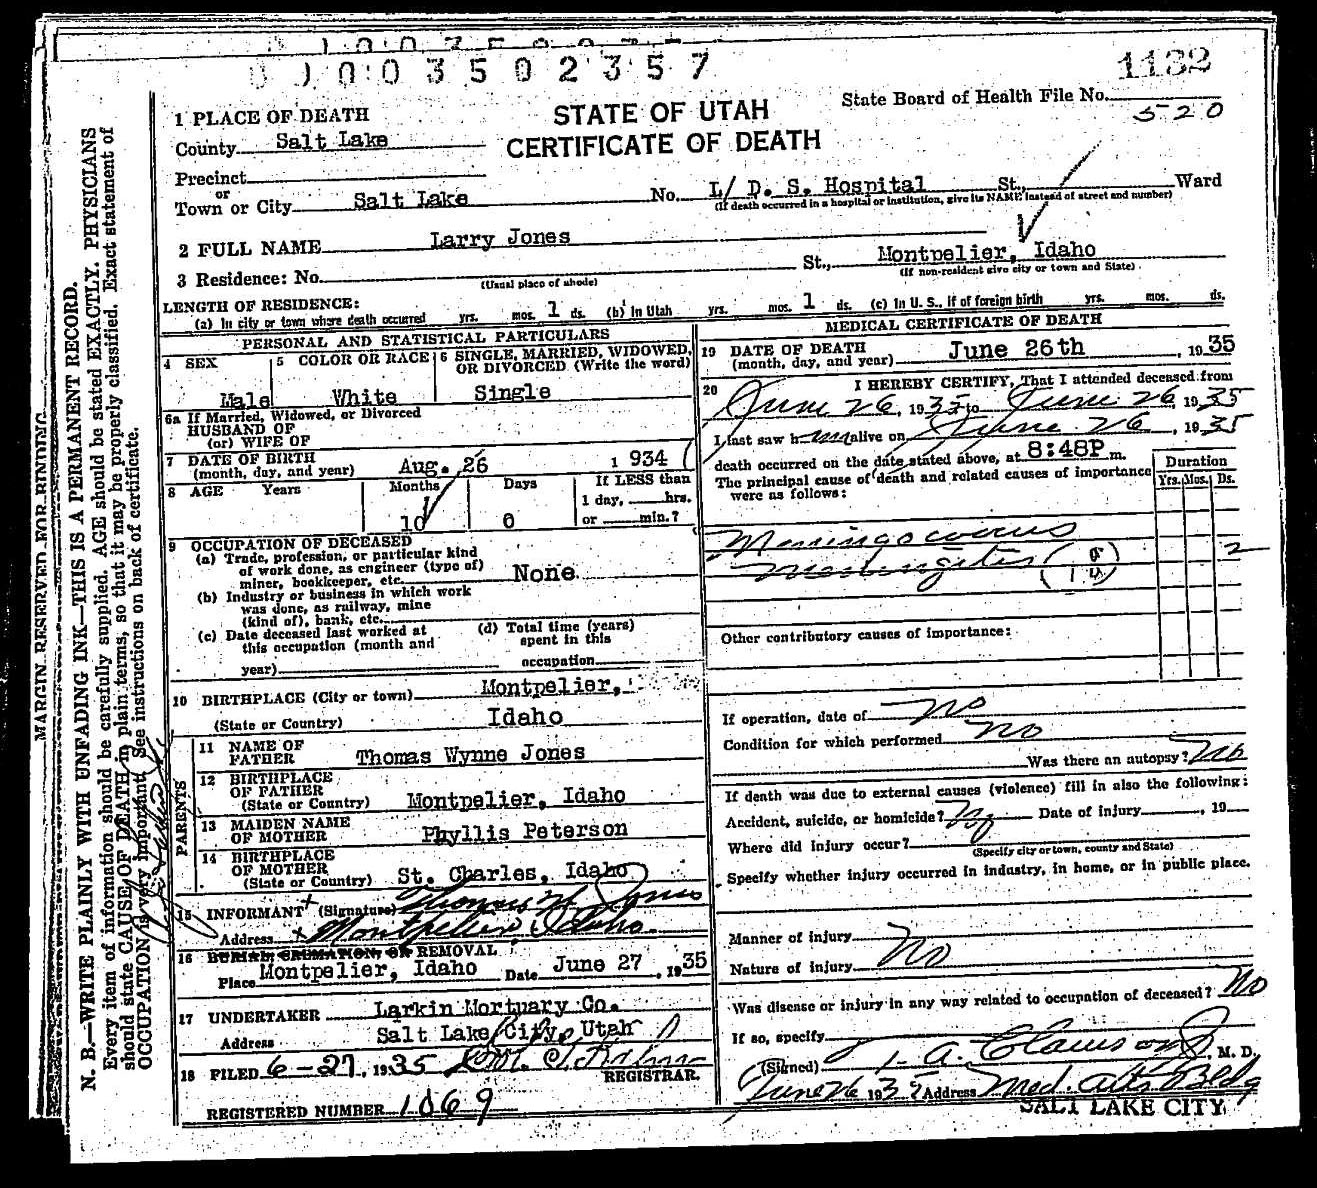 0 1 0 0 3 5 0 2 3 5 7
1132
STATE OF UTAH
CERTIFICATE OF DEATH
State Board of Health File No.
520
1 PLACE OF DEATH
County Salt Lake
Precinct
or
Town or City Salt Lake No. L/ D. S. Hospital St., Ward
(If death occurred in a hospital or institution, give its NAME instead of street and number)
2 FULL NAME Larry Jones
3 Residence: No. St., Montpelier, Idaho
(Usual place of abode) (If non-resident give city or town and State)
LENGTH OF RESIDENCE:
(a) In city or town where death occurred yrs. mos. 1 ds. (b) In Utah yrs. mos. 1 ds. (c) In U. S., if of foreign birth yrs. mos. ds.
PERSONAL AND STATISTICAL PARTICULARS
4 SEX Male
5 COLOR OR RACE White
6 SINGLE, MARRIED, WIDOWED,
OR DIVORCED (Write the word)
Single
6a If Married, Widowed, or Divorced
HUSBAND OF
(or) WIFE OF
7 DATE OF BIRTH
(month, day, and year) Aug. 26 1 934
8 AGE Years Months Days If LESS than
1 day, hrs.
10 0 or min.?
9 OCCUPATION OF DECEASED
(a) Trade, profession, or particular kind
of work done, as engineer (type of)
miner, bookkeeper, etc. None
(b) Industry or business in which work
was done, as railway, mine
(kind of), bank, etc.
(c) Date deceased last worked at
this occupation (month and
year)
(d) Total time (years)
spent in this
occupation
10 BIRTHPLACE (City or town) Montpelier,
(State or Country) Idaho
PARENTS
11 NAME OF
FATHER Thomas Wynne Jones
12 BIRTHPLACE
OF FATHER
(State or Country) Montpelier, Idaho
13 MAIDEN NAME
OF MOTHER Phyllis Peterson
14 BIRTHPLACE
OF MOTHER
(State or Country) St. Charles, Idaho
15 INFORMANT (Signature) Thomas W Jones
Address Montpelier, Idaho.
16 BURIAL, CREMATION, OR REMOVAL
Place Montpelier, Idaho Date June 27, 1935
17 UNDERTAKER Larkin Mortuary Co.
Address Salt Lake City, Utah
18 FILED 6-27, 1935
REGISTRAR.
REGISTERED NUMBER 1069
MEDICAL CERTIFICATE OF DEATH
19 DATE OF DEATH
(month, day, and year) June 26th, 1935
20 I HEREBY CERTIFY, That I attended deceased from
June 26, 1935 to June 26, 1935
I last saw him alive on June 26, 1935
death occurred on the date stated above, at 8:48P m.
The principal cause of death and related causes of importance
were as follows:
Duration
Yrs. Mos. Ds.
Meningococcus
Meningitis 2
Other contributory causes of importance:
If operation, date of no
Condition for which performed no
Was there an autopsy? No
If death was due to external causes (violence) fill in also the following:
Accident, suicide, or homicide? No Date of injury, 19
Where did injury occur?
(Specify city or town, county and State)
Specify whether injury occurred in industry, in home, or in public place.
Manner of injury
Nature of injury No
Was disease or injury in any way related to occupation of deceased? No
If so, specify
(Signed) A. Clawson, M. D.
June 26 1935 Address Med. Arts Bldg
SALT LAKE CITY
MARGIN RESERVED FOR BINDING
N. B.—WRITE PLAINLY WITH UNFADING INK—THIS IS A PERMANENT RECORD.
Every item of information should be carefully supplied. AGE should be stated EXACTLY. PHYSICIANS
should state CAUSE OF DEATH in plain terms, so that it may be properly classified. Exact statement of
OCCUPATION is very important. See instructions on back of certificate.